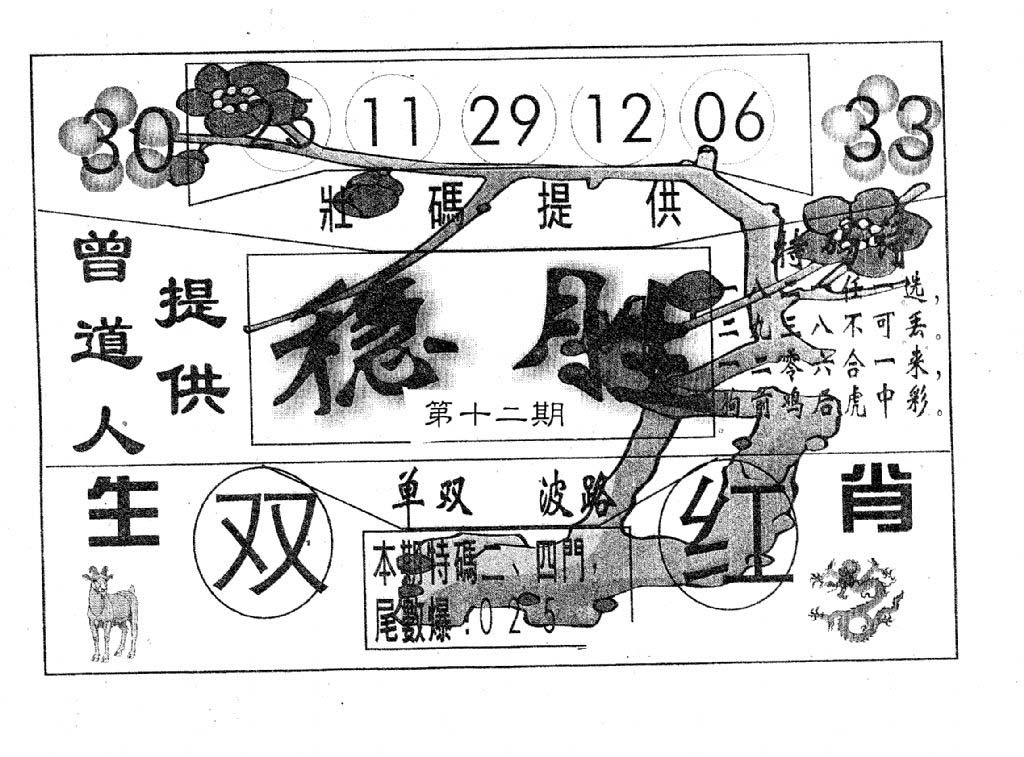 30 25 11 29 12 06 33
壯碼提供
曾道人
提供
稳胜
第十二期
特码诗
一八二八任一选，
二九三八不可丢。
一二零六合一来，
狗前鸡后虎中彩。
生肖
单双 波路
双 红
本期特碼二、四門，
尾數爆：0 2 5